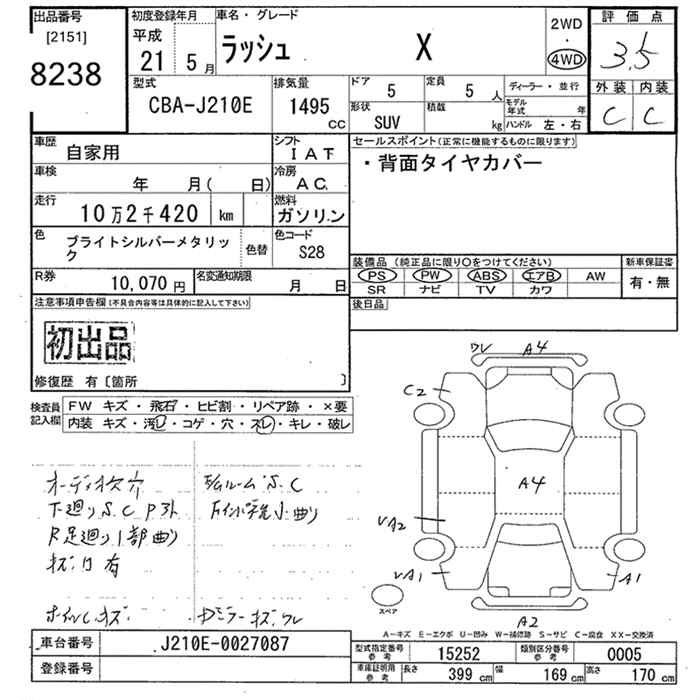 出品番号
[2151]
8238
初度登録年月
平成
21 5月
車名・グレード
ラッシュ X
2WD
・
4WD
評価点
3.5
外装 内装
C C
型式
CBA-J210E
排気量
1495
CC
ドア
5
定員
5人
形状
SUV
積載
kg
ディーラー・並行
モデル年式 年
ハンドル 左・右
車歴
自家用
シフト
IAT
車検
年 月( 日)
冷房
AC
走行
10万2千420 km
燃料
ガソリン
色
ブライトシルバーメタリック
色替
色コード
S28
R券
10,070円
名変通知期限
月 日
セールスポイント(正常に機能するものに限ります)
・背面タイヤカバー
装備品(純正品に限り○をつけてください)
PS PW ABS エアB AW
SR ナビ TV カワ
新車保証書
有・無
後日品
注意事項申告欄(不具合内容等は具体的に記入して下さい)
初出品
修復歴 有〔箇所 〕
検査員記入欄
FW キズ・飛石・ヒビ割・リペア跡・×要
内装 キズ・汚レ・コゲ・穴・スレ・キレ・破レ
下廻りS.C
R足廻り1部曲り
キズ 有
ルームS.C
小曲り
ホイールキズ
ミラーキズ
ワレ A4
C2
A4
A2
A1
A1
スペア
A2
A-キズ E-エクボ U-凹み W-補修跡 S-サビ C-腐食 XX-交換済
車台番号
J210E-0027087
登録番号
型式指定番号
参考
15252
類別区分番号
参考
0005
車庫証明用
参考
長さ 399 cm 幅 169 cm 高さ 170 cm